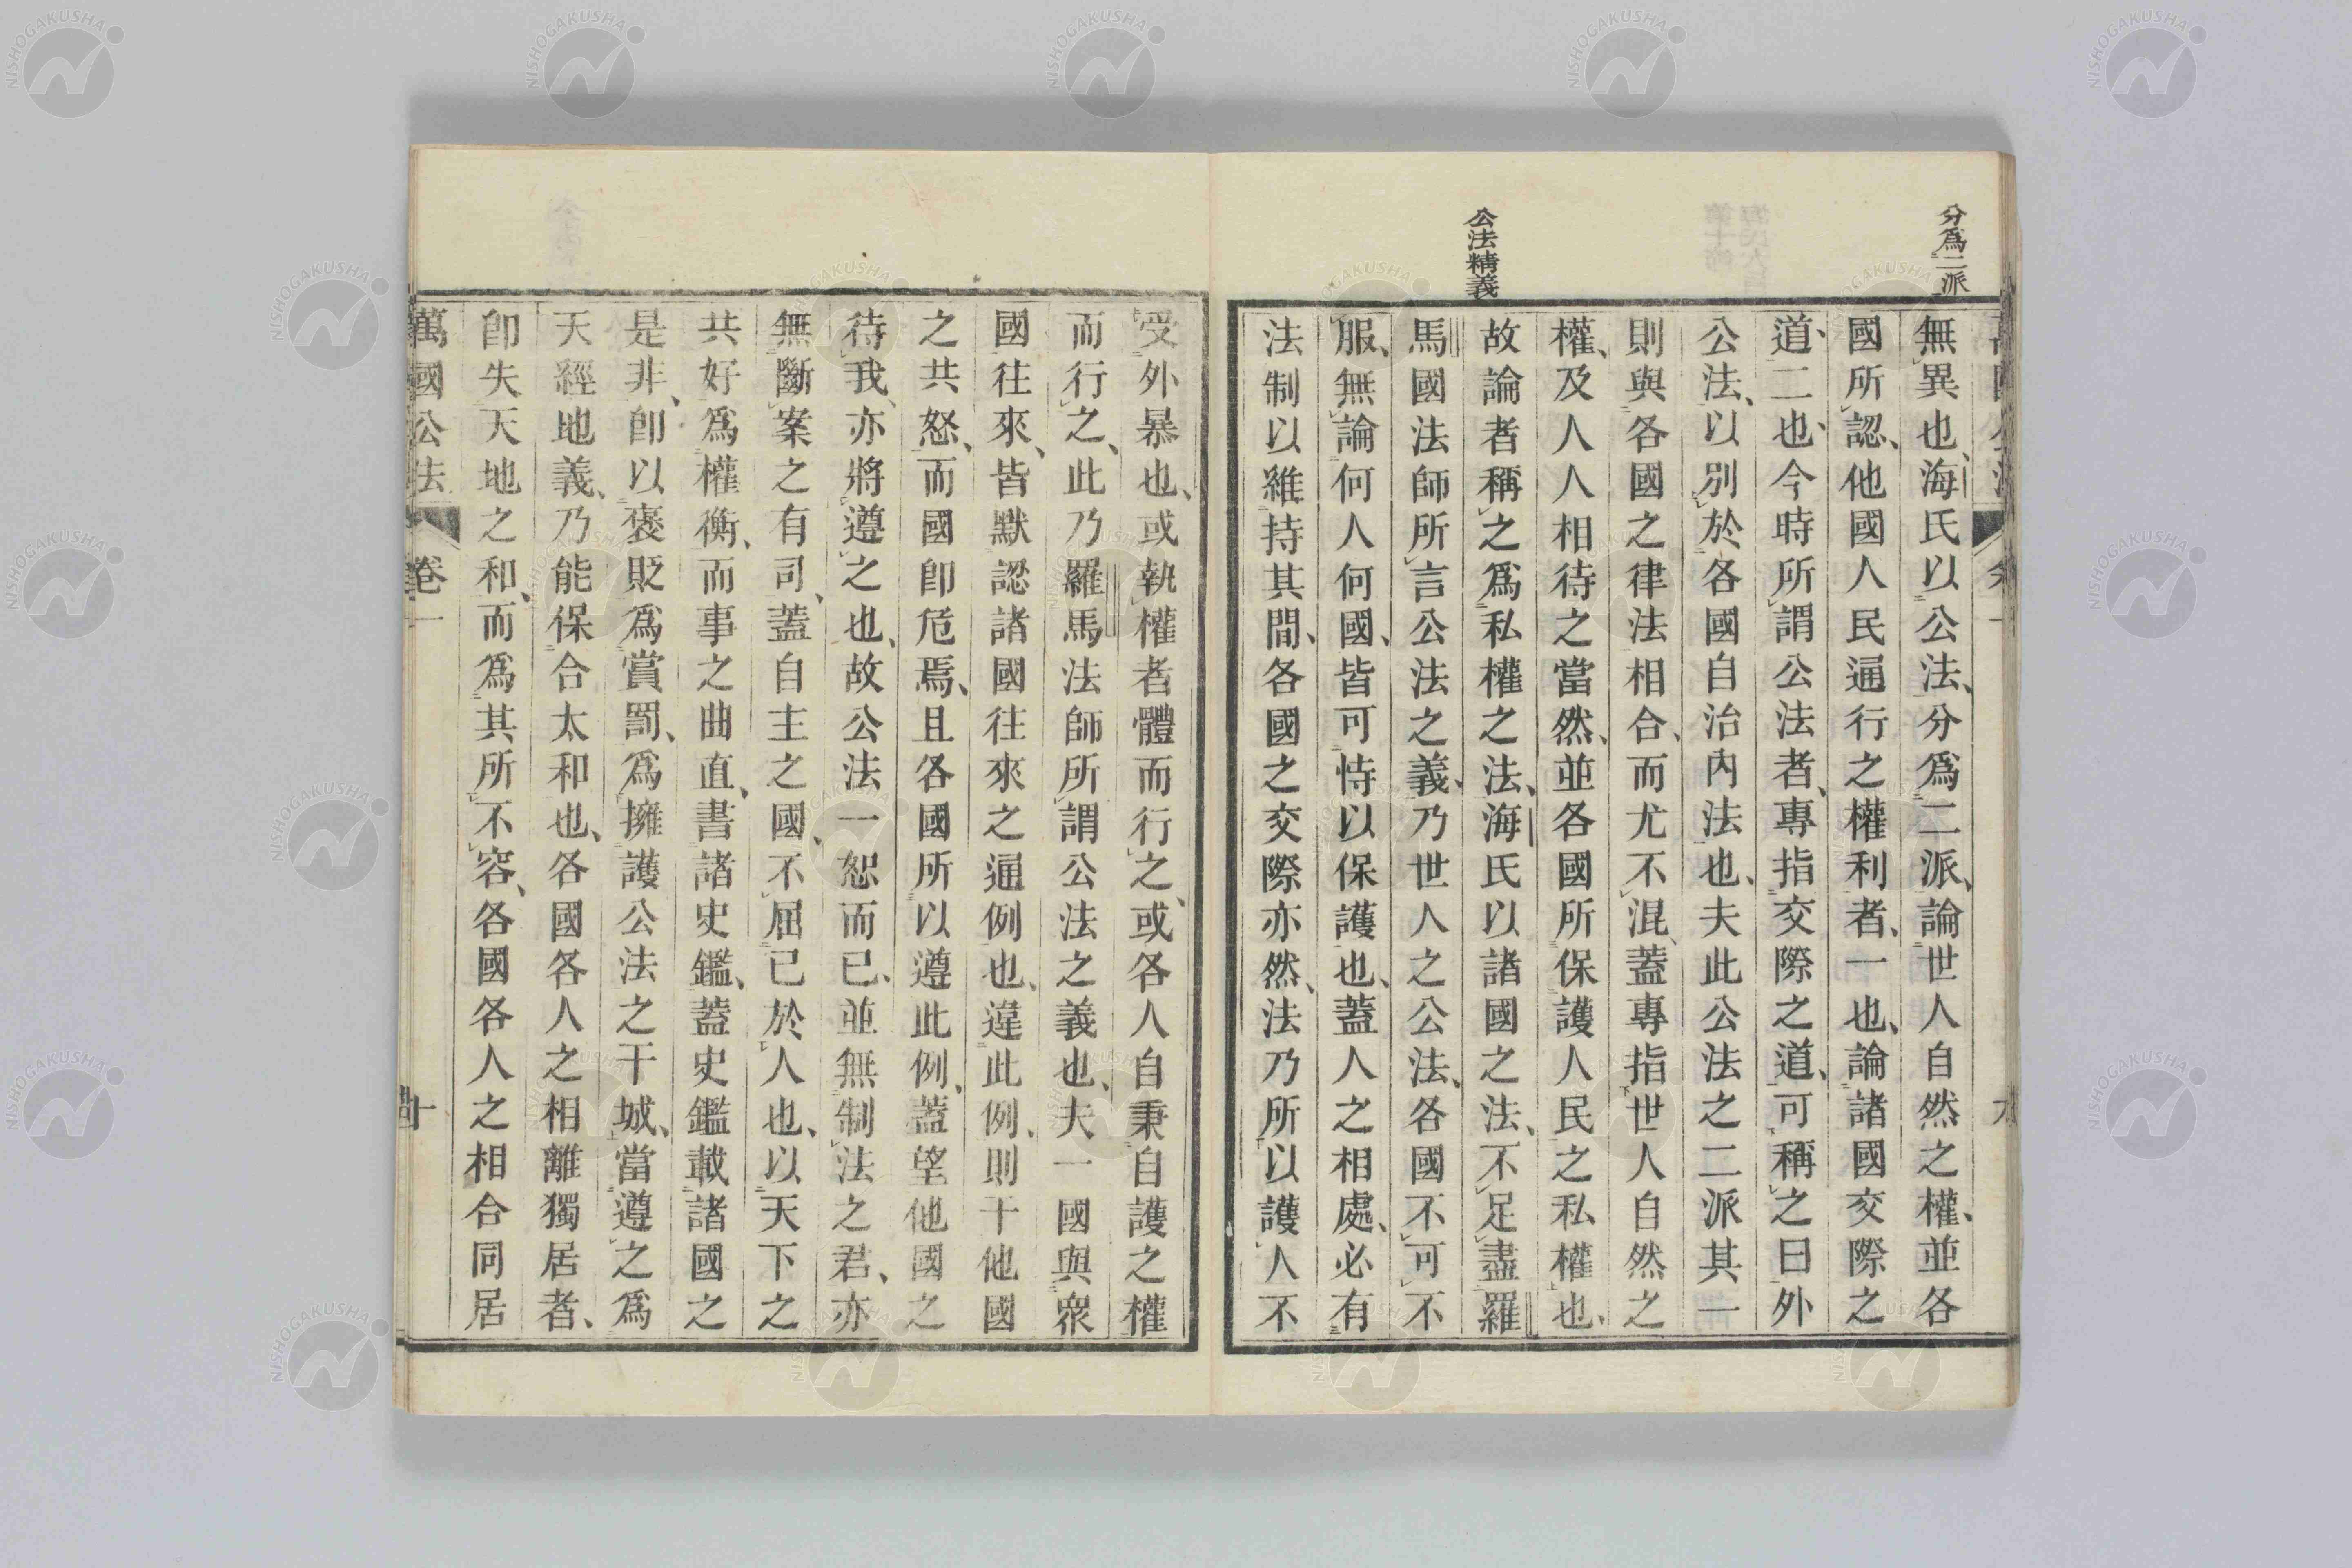 分爲二派
公法精義
無異也、海氏以公法、分爲二派、論世人自然之權、並各
國所認、他國人民通行之權利者、一也、論諸國交際之
道、二也、今時所謂公法者、專指交際之道、可稱之曰外
公法、以別於各國自治內法也、夫此公法之二派其一
則與各國之律法相合、而尤不混、蓋專指世人自然之
權、及人人相待之當然、並各國所保護人民之私權也、
故論者稱之爲私權之法、海氏以諸國之法、不足盡羅
馬國法師所言公法之義、乃世人之公法、各國不可不
服、無論何人何國、皆可恃以保護也、蓋人之相處、必有
法制以維持其間、各國之交際亦然、法乃所以護人不
受外暴也、或執權者體而行之、或各人自秉自護之權
而行之、此乃羅馬法師所謂公法之義也、夫一國與衆
國往來、皆默認諸國往來之通例也、違此例、則干他國
之共怒、而國卽危焉、且各國所以遵此例、蓋望他國之
待我、亦將遵之也、故公法一恕而已、並無制法之君、亦
無斷案之有司、蓋自主之國、不屈已於人也、以天下之
共好爲權衡、而事之曲直、書諸史鑑、蓋史鑑載諸國之
是非、卽以褒貶爲賞罰、爲擁護公法之干城、當遵之爲
天經地義、乃能保合太和也、各國各人之相離獨居者、
卽失天地之和、而爲其所不容、各國各人之相合同居
萬國公法 卷一 十